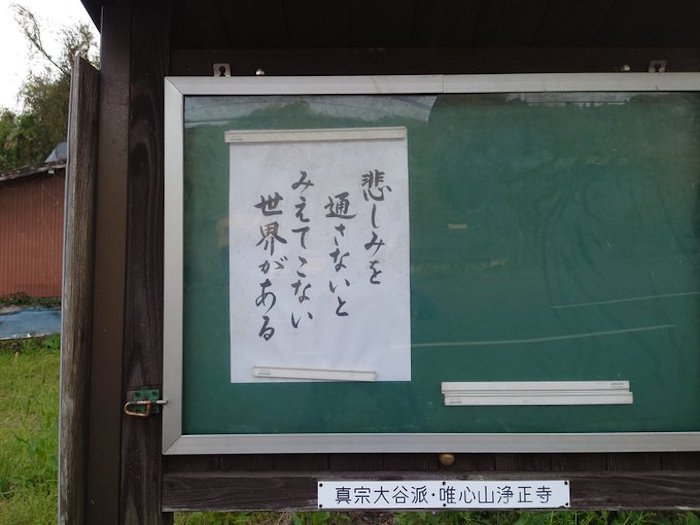 悲しみを
通さないと
みえてこない
世界がある
真宗大谷派・唯心山浄正寺